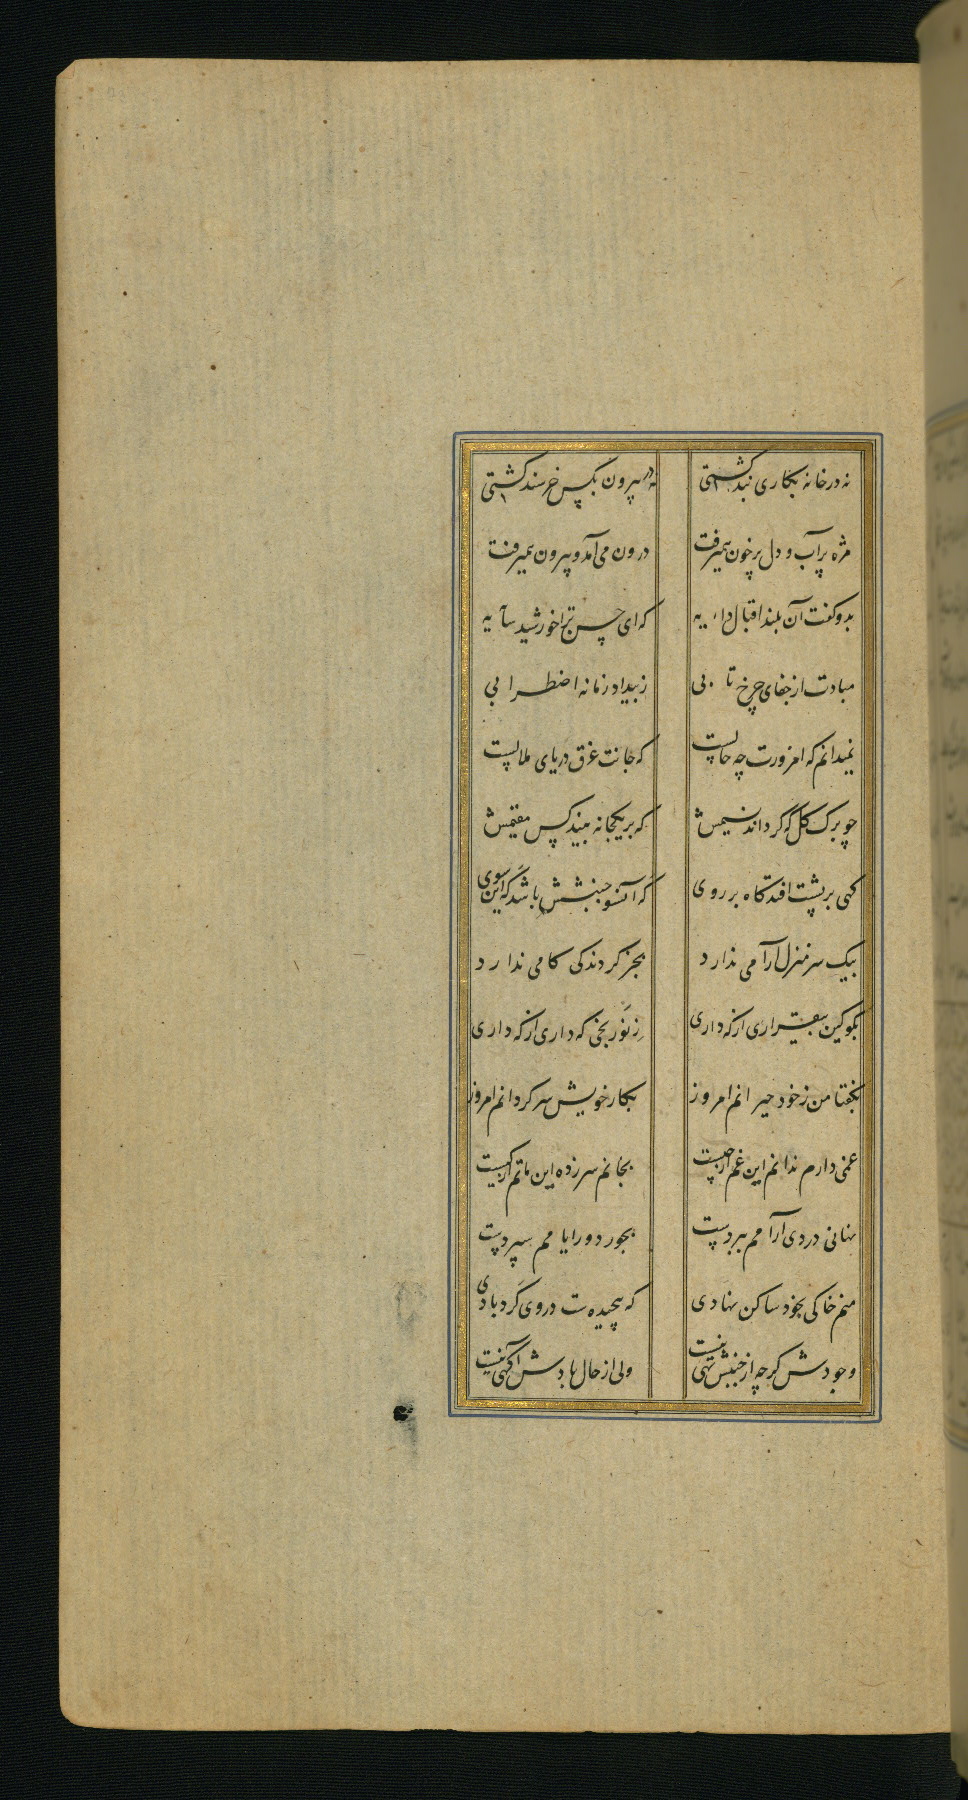 نه در خانه بکاری بند گشتی نه در بیرون بکس خرسند گشتی
مژه پر آب و دل پر خون همیرفت درون می آمد و بیرون همیرفت
بدو گفت آن بلند اقبال دایه که ای حسن ترا خورشید سایه
مبادت از جفای چرخ تابی ز بیداد زمانه اضطرابی
نمیدانم که امروزت چه حالیست که جانت غرق دریای ملالیست
چو برگ گل که گرداند نسیمش که بر یکجا نه بیند کس مقیمش
گهی بر پشت افتد گاه بر روی که آنسو جنبشش باشد که این سوی
بیک سر منزل آرامی ندارد بجز گردندگی کامی ندارد
بگو کین بیقراری از که داری ز نو ربخی که داری از که داری
بگفتا من ز خود حیرانم امروز بکار خویش سرگردانم امروز
غمی دارم ندانم این غم از چیست بجانم سر زده این ماتم از کیست
نهانی دردی آرامم ببردست بجور دور ایامم سپردست
منم خاکی بخود ساکن نهادی که پیچیده‌ست در وی گردبادی
وجودش گرچه از جنبش تهی نیست ولی از حال بادش آگهی نیست